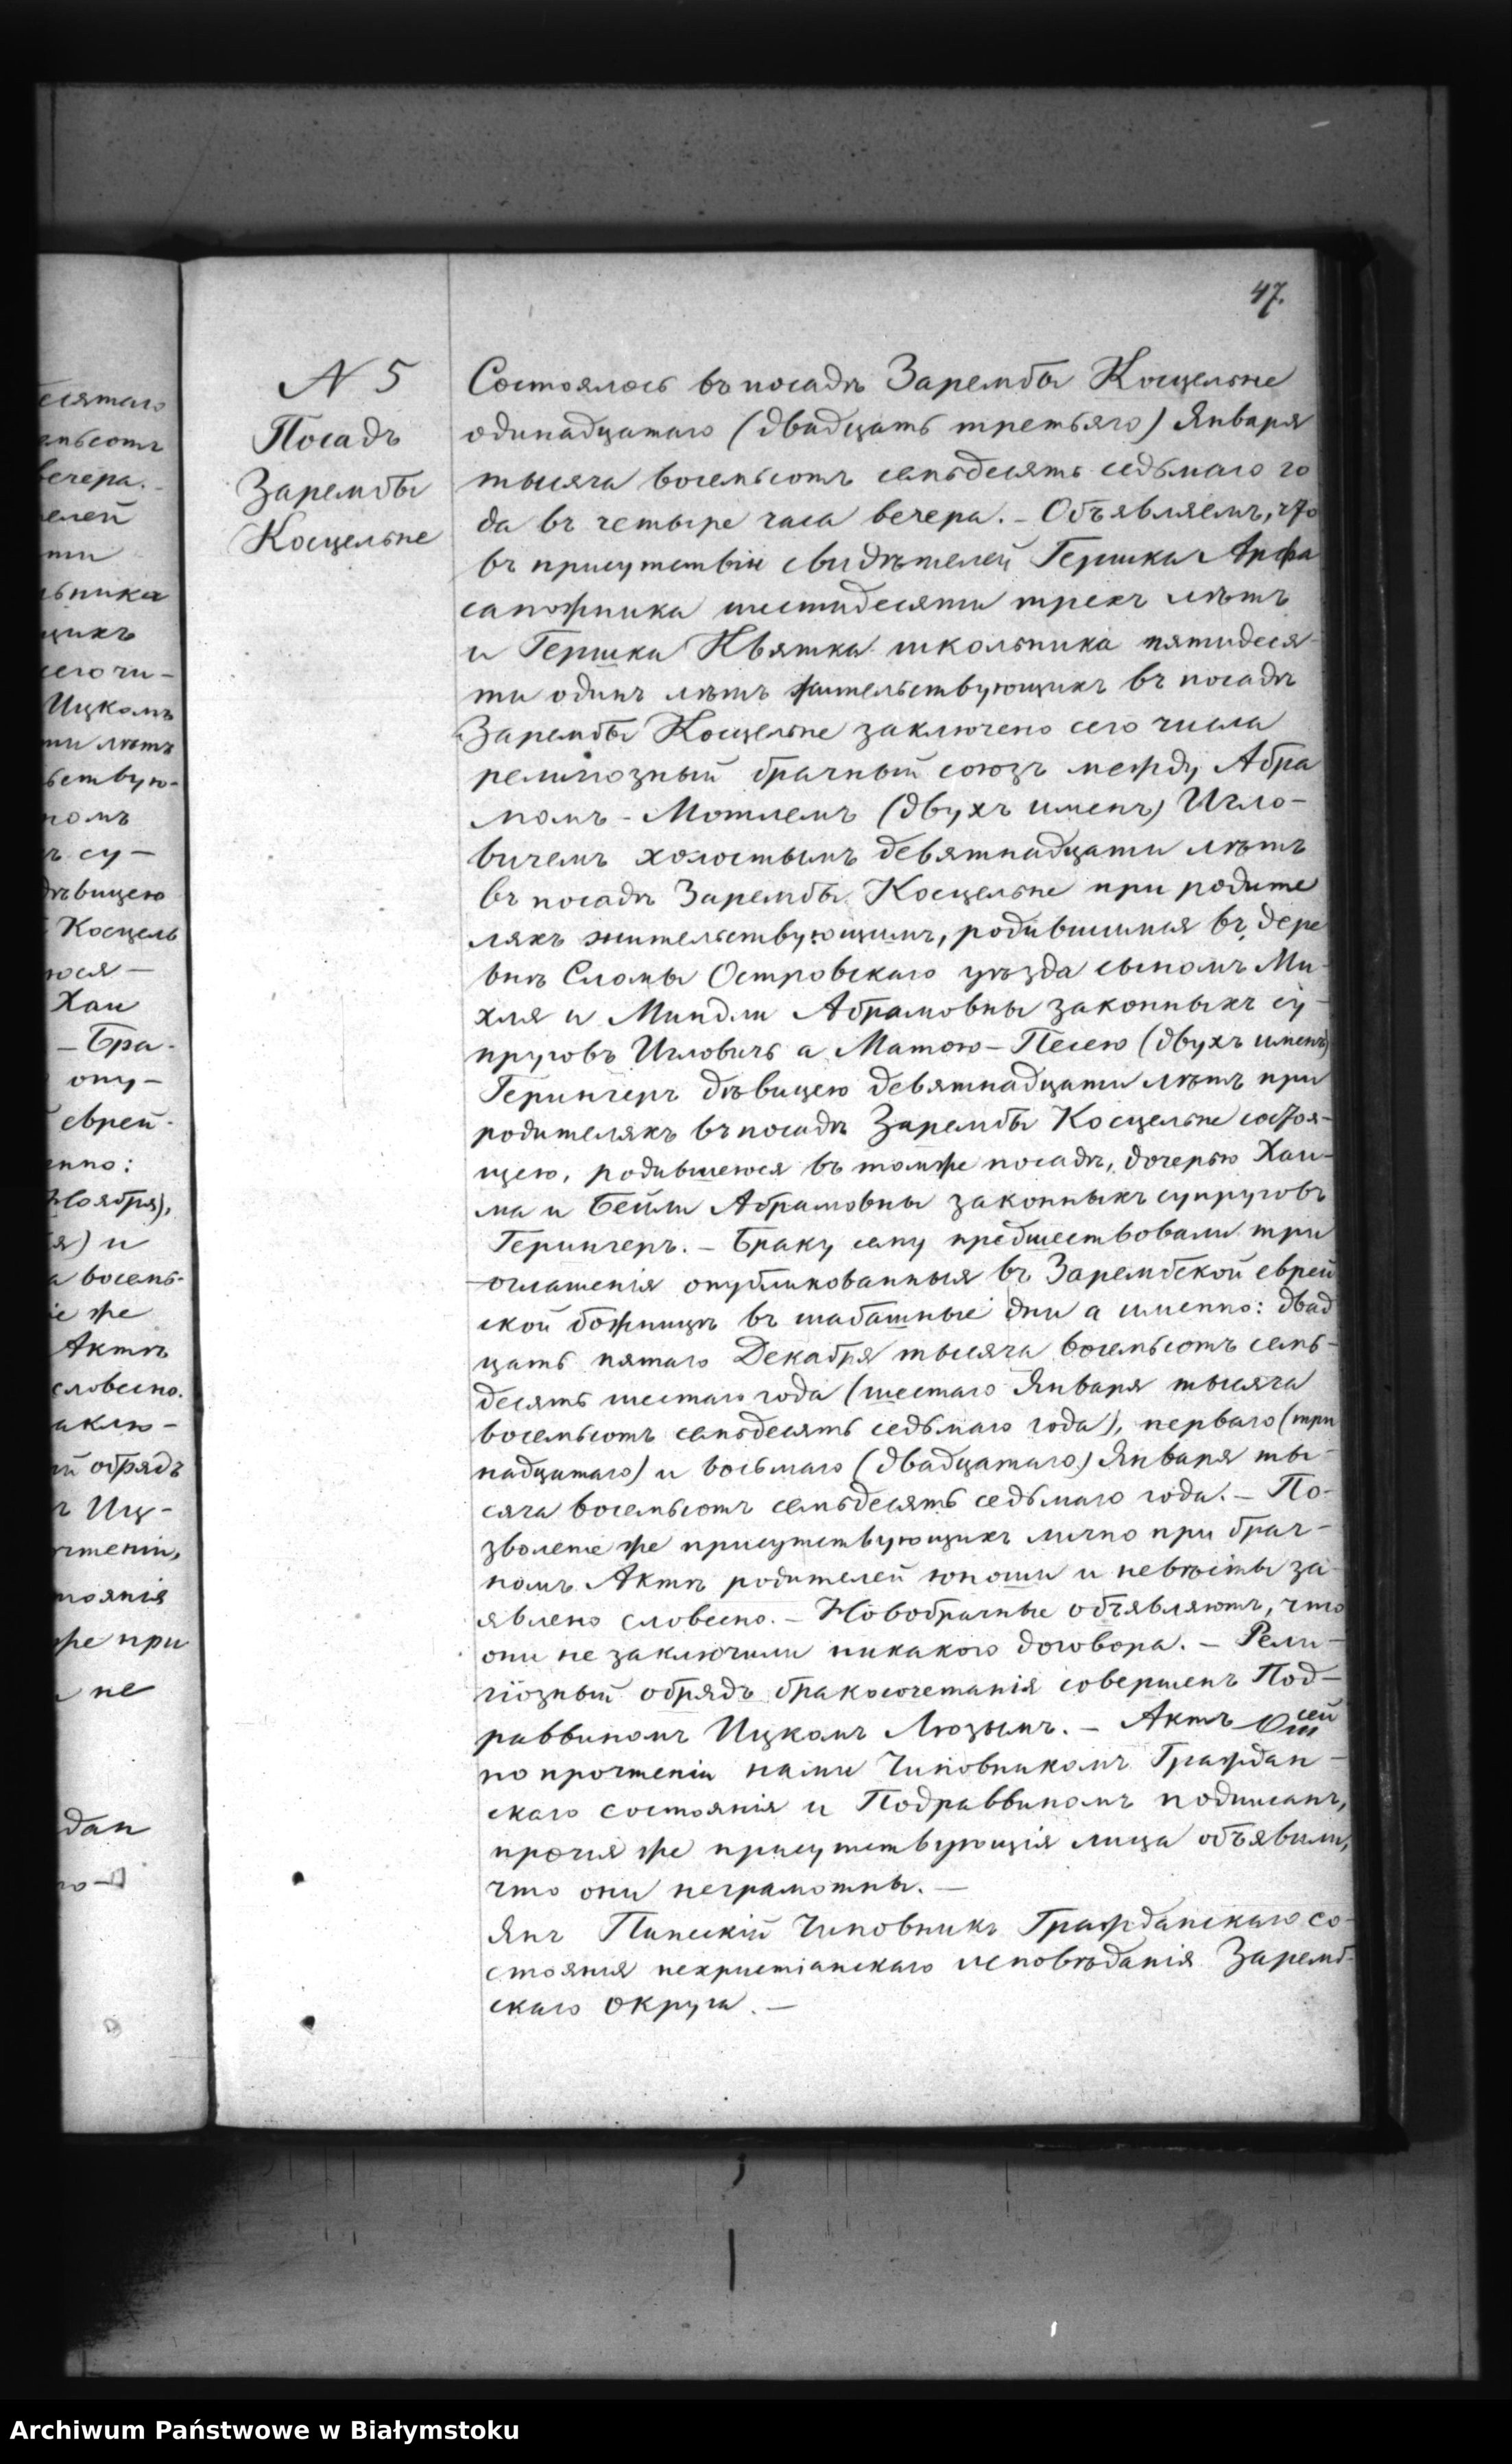 47.
N 5
Посадъ
Зарембы
Косцельне
Состоялось въ посадѣ Зарембы Косцельне
одинадцатаго (двадцать третьяго) Января
тысяча восемьсотъ семьдесятъ седьмаго го
да въ четыре часа вечера. – Объявляемъ, что
въ присутствіи свидѣтелей Гершка Арфа
сапожника шестидесяти трехъ лѣтъ
и Гершка Квятка школьника пятидеся-
ти одинъ лѣтъ жительствующихъ въ посадѣ
Зарембы Косцельне заключено сего числа
религіозный брачный союзъ между Абра
момъ - Мотлемъ (двухъ именъ) Игло-
вичемъ холостымъ девятнадцати лѣтъ
въ посадѣ Зарембы Косцельне при родите
ляхъ жительствующимъ, родившимся въ дере
внѣ Сломы Островскаго уѣзда сыномъ Ми-
хля и Миндли Абрамовны законныхъ су-
пруговъ Игловичъ а Матою - Песею (двухъ именъ)
Герингеръ дѣвицею девятнадцати лѣтъ при
родителяхъ въ посадѣ Зарембы Косцельне состоя-
щею, родившеюся въ томже посадѣ, дочерью Хаи-
ма и Бейли Абрамовны законныхъ супруговъ
Герингеръ. – Браку сему предшествовали три
оглашенія опубликованныя въ Зарембской еврей
ской божницѣ въ шабашные дни а именно: двад
цать пятаго Декабря тысяча восемьсотъ семь-
десятъ шестаго года (шестаго Января тысяча
восемьсотъ семьдесятъ седьмаго года), перваго (три
надцатаго) и восьмаго (двадцатаго) Января ты-
сяча восемьсотъ семьдесятъ седьмаго года. – По-
зволеніе же присутствующихъ лично при брач-
номъ Актѣ родителей юноши и невѣсты за-
явлено словесно. – Новобрачные объявляютъ, что
они не заключили никакого договора. – Рели-
гіозный обрядъ бракосочетанія совершенъ Под-
раввиномъ Ицкомъ Люзымъ. – Актъ сей
по прочтеніи нами Чиновникомъ Граждан-
скаго состоянія и Подраввиномъ подписанъ,
прочія же присутствующія лица объявили,
что они неграмотны. –
Янъ Чиновникъ Гражданскаго со-
стоянія нехристіанскаго исповѣданія Заремб-
скаго округа. –
есятаго
вечера. -
елей
ьника
сего чи-
Ицкомъ
ти лѣтъ
ьствую-
су-
дѣвицею
Косцель
Хаи
- Бра-
опу-
еврей-
нно:
Ноября),
я) и
а восемь-
іе же
Актѣ
словесно.
аклю-
й обрядъ
ъ Иц-
чтеніи,
тоянія
же при
не
дан
Archiwum Państwowe w Białymstoku